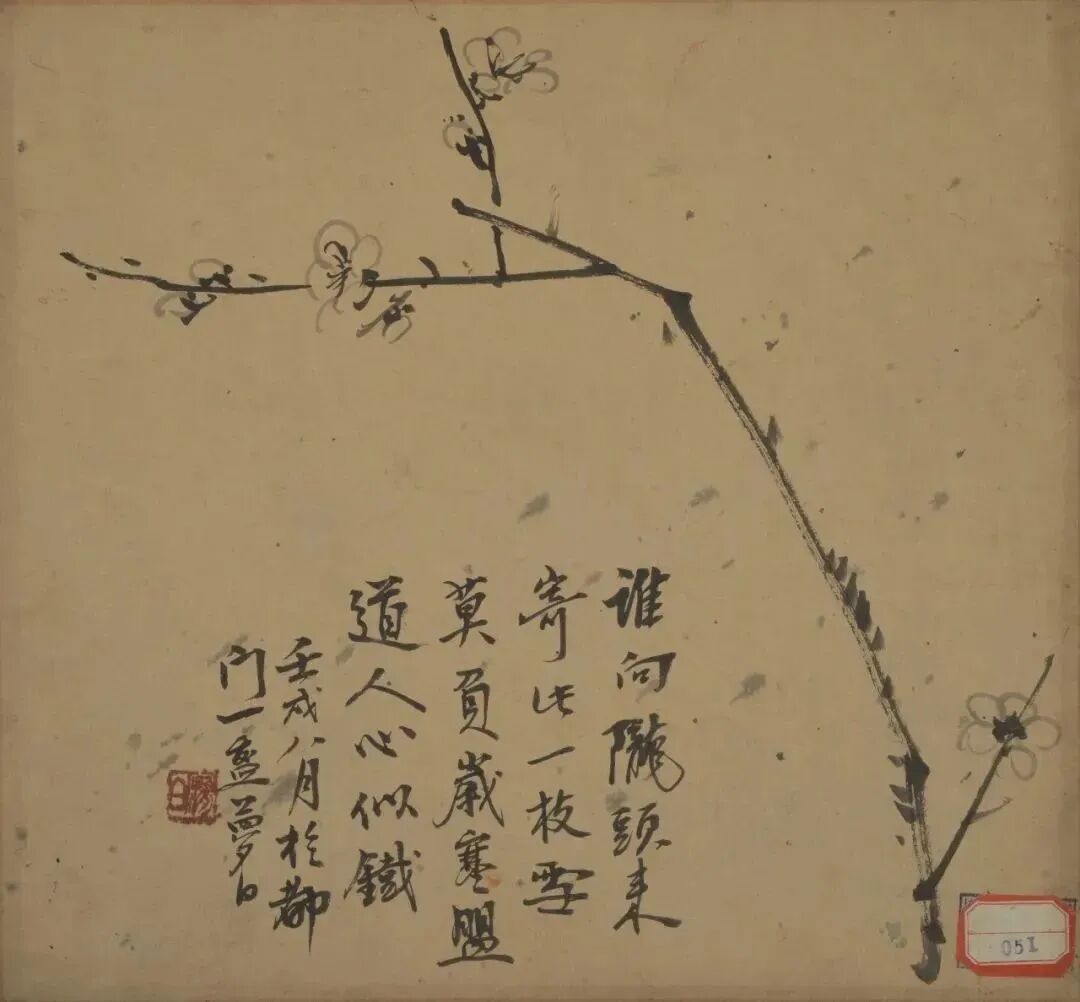 誰向隴頭来
寄此一枝雪
莫負歲寒盟
道人心似鐵
壬戌八月於都
門一盦夢白
夢白
051